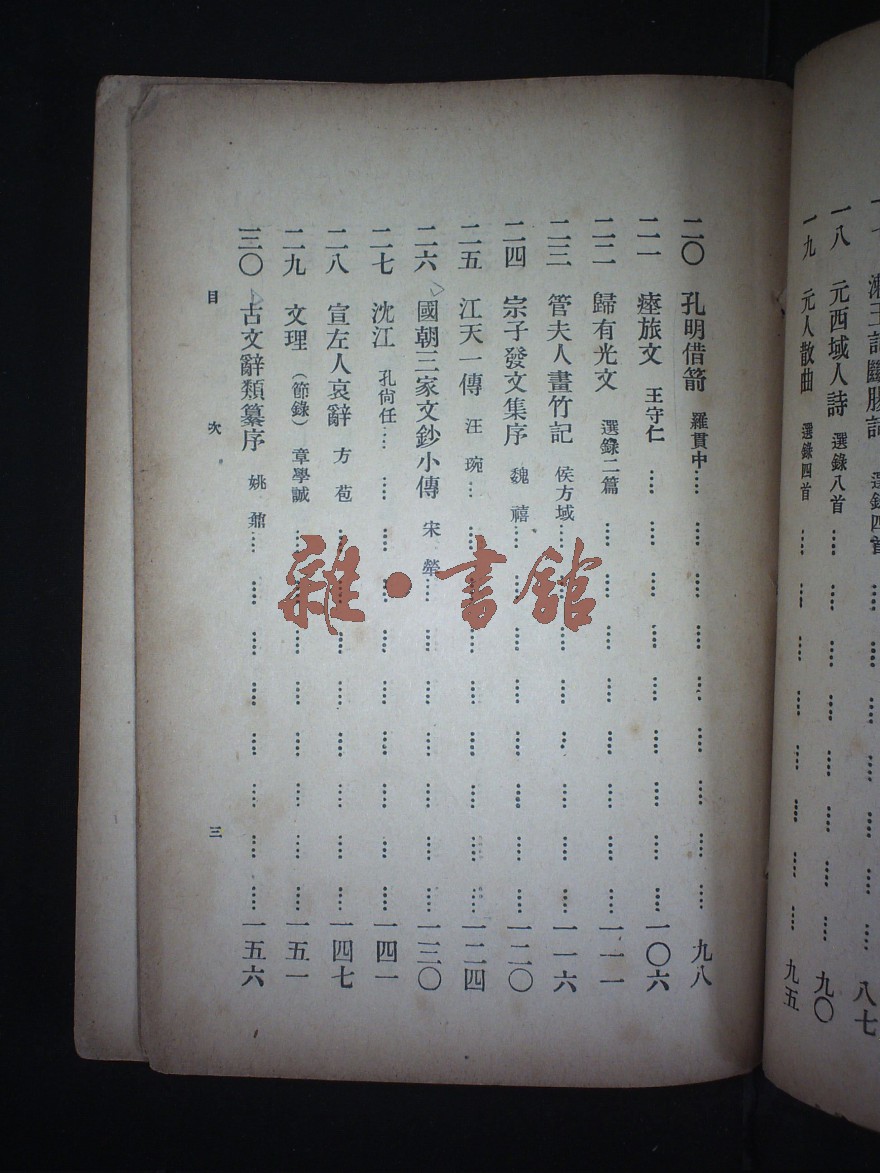 一八 元西域人詩 選錄八首 …… 九〇
一九 元人散曲 選錄四首 …… 九五
二〇 孔明借箭 羅貫中 …… 九八
二一 瘞旅文 王守仁 …… 一〇六
二二 歸有光文 選錄二篇 …… 一一一
二三 管夫人畫竹記 侯方域 …… 一一六
二四 宗子發文集序 魏禧 …… 一二〇
二五 江天一傳 汪琬 …… 一二四
二六 國朝三家文鈔小傳 宋犖 …… 一三〇
二七 沈江 孔尙任 …… 一四一
二八 宣左人哀辭 方苞 …… 一四七
二九 文理（節錄） 章學誠 …… 一五一
三〇 古文辭類纂序 姚鼐 …… 一五六
目次 三
雜·書館